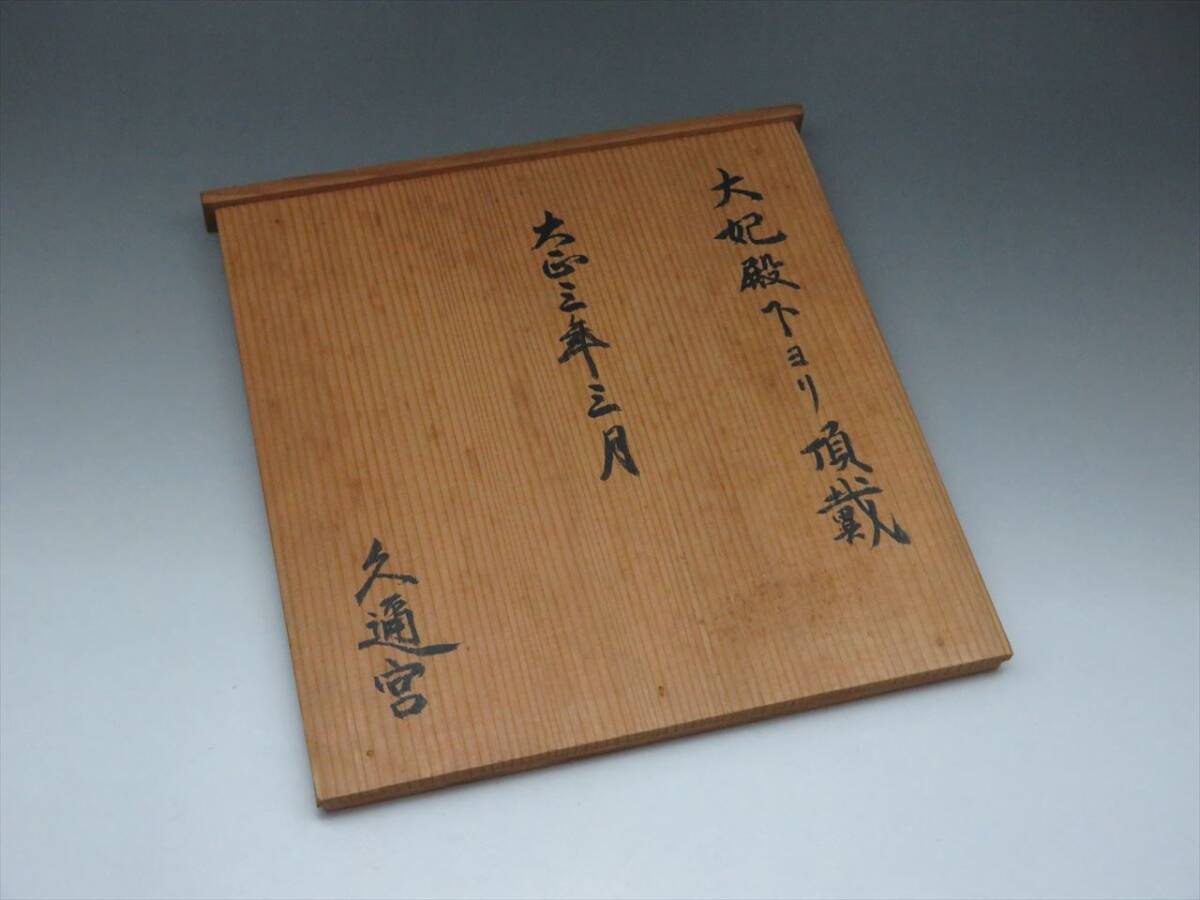 大妃殿下ヨリ頂戴
大正三年三月
久邇宮